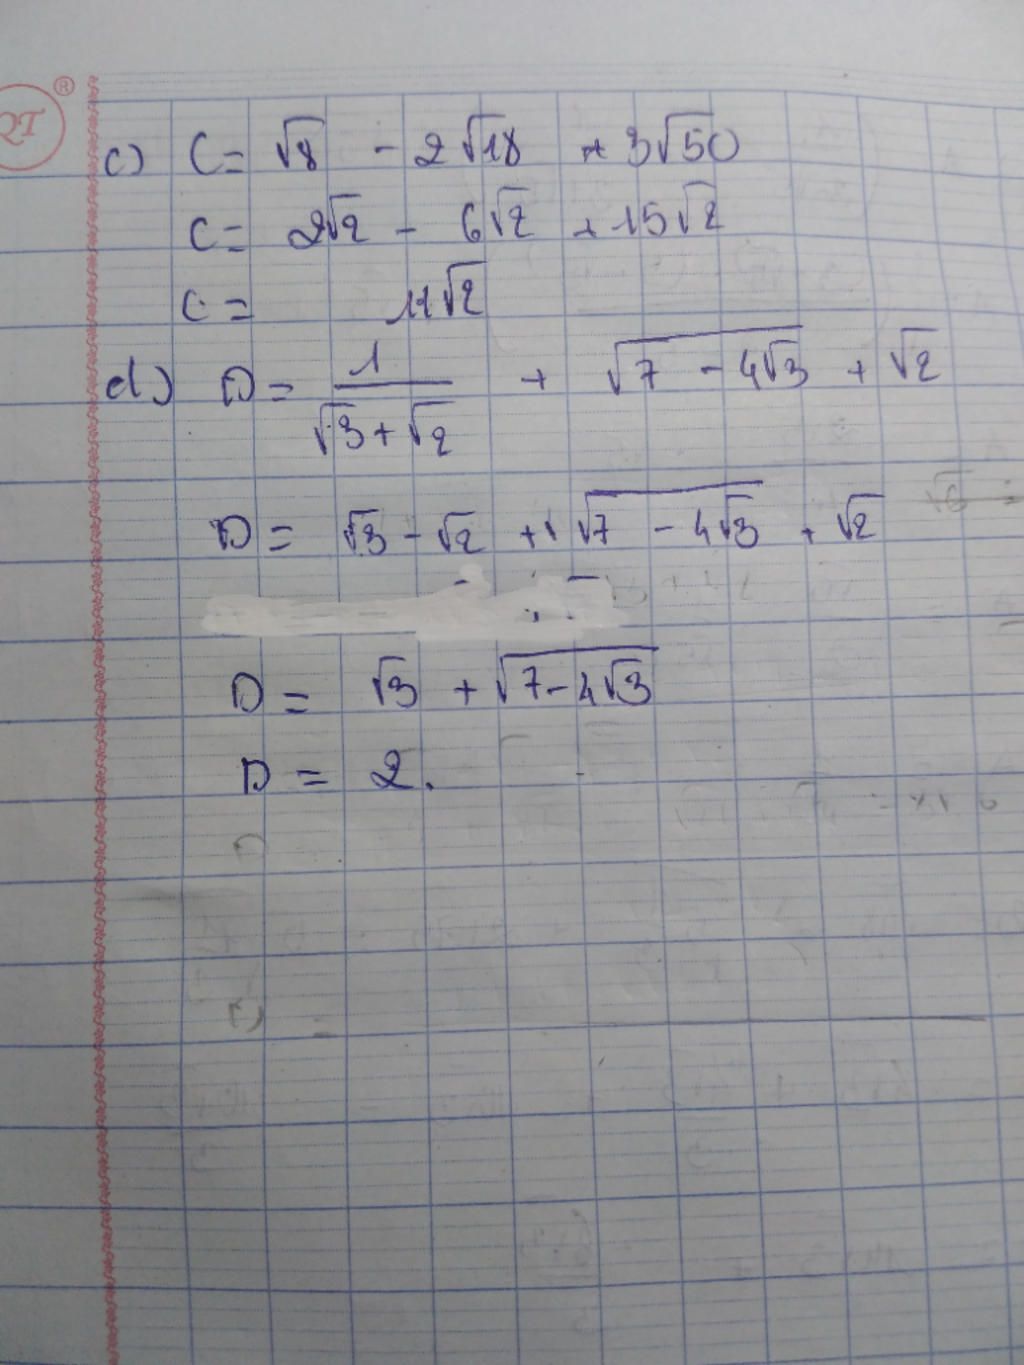 QT ®
c) C = √8 - 2√18 + 3√50
C = 2√2 - 6√2 + 15√2
C = 11√2
d) D = 1/(√3+√2) + √(7 - 4√3) + √2
D = √3 - √2 + √(7 - 4√3) + √2
D = √3 + √(7-4√3)
D = 2.